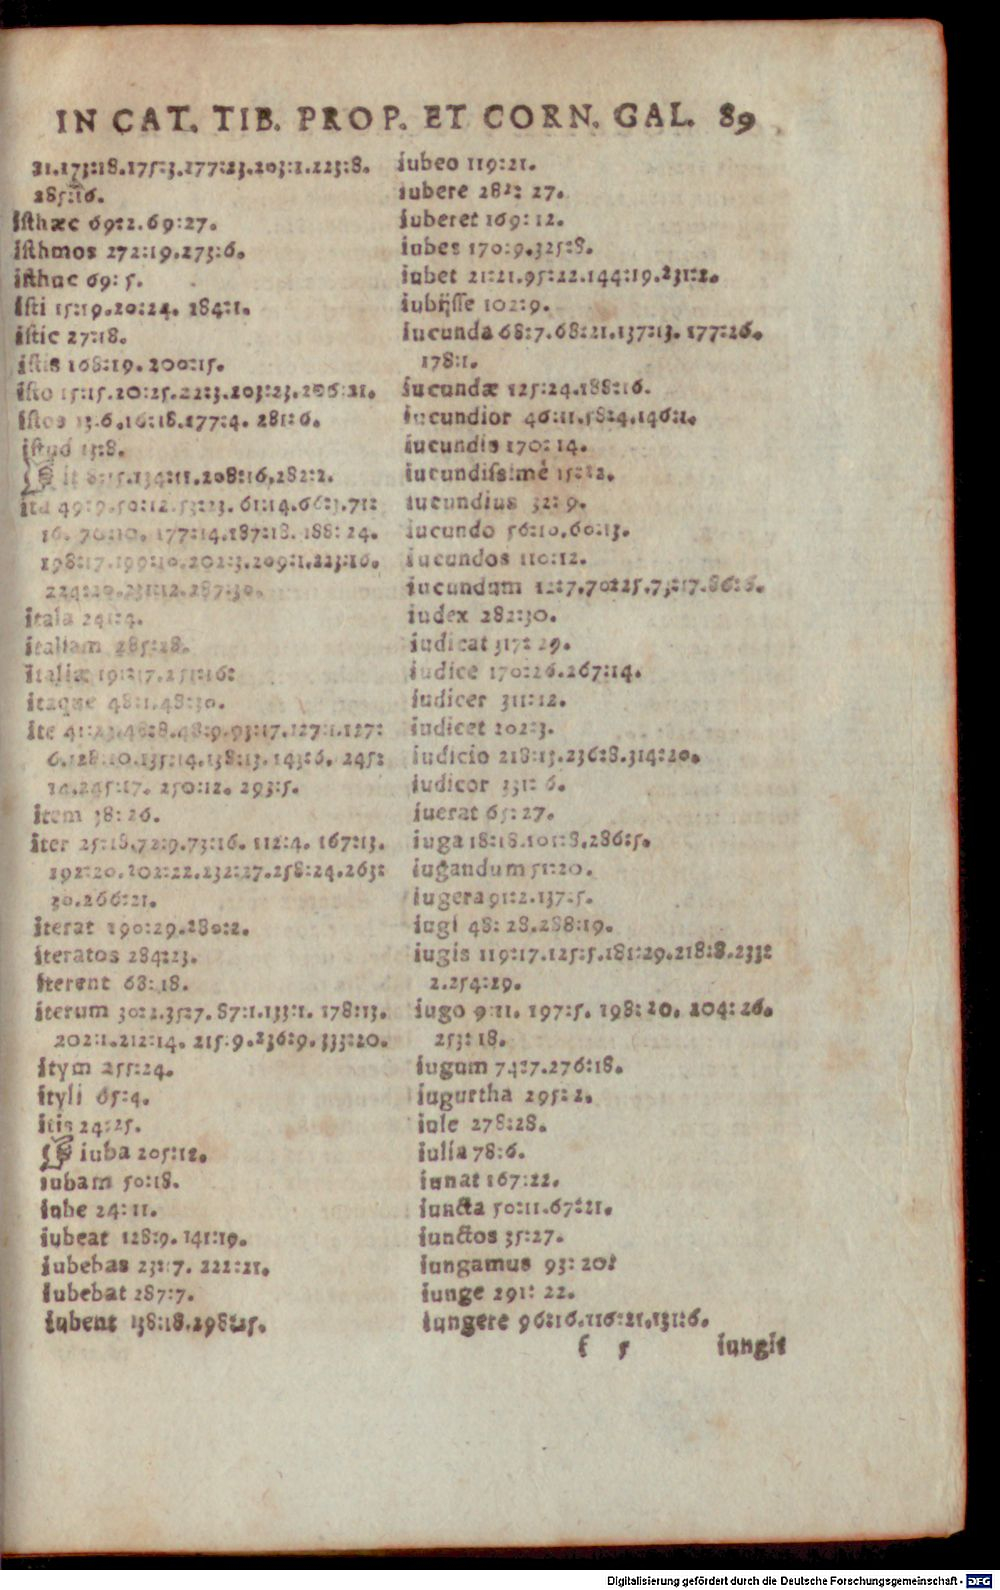 IN CAT. TIB. PROP. ET CORN. GAL. 89
31.173:18.175:3.177:23.203:1.223:8.
285:16.
isthæc 69:2.69:27.
isthmos 272:19.273:6.
isthuc 69:5.
isti 15:19.20:24. 184:1.
istic 27:18.
istis 168:19. 200:15.
isto 15:15.20:25.22:3.203:23.206:21.
istos 13:6.16:18.177:4. 281:6.
istud 13:8.
it 8:15.134:11.208:16.282:2.
ita 49:9.50:12.53:23. 61:14.66:3.71:
16. 76:10. 177:14.187:18. 188:24.
198:17.199:10.202:3.209:1.223:16.
224:20.231:12.287:30.
itala 241:4.
italiam 285:28.
italiæ 191:17.251:16:
itaque 48:1.48:30.
ite 41:23.46:8.48:9.93:17.127:1.127:
6.128:10.135:14.138:13.143:6. 245:
14.245:17. 250:12. 293:5.
item 38:26.
iter 25:18.72:9.73:16. 112:4. 167:13.
192:20.202:22.232:27.258:24.263:
30.266:21.
iterat 190:29.280:2.
iteratos 284:23.
iterent 68:18.
iterum 30:2.35:7. 87:1.133:1. 178:13.
202:1.212:14. 215:9.236:9.333:20.
itym 255:24.
ityli 65:4.
itis 24:25.
iuba 205:12.
iubam 50:18.
iube 24:11.
iubeat 128:9. 141:19.
iubebas 23:17. 222:21.
iubebat 287:7.
iubent 138:18.298:15.
iubeo 119:21.
iubere 282: 27.
iuberet 169:12.
iubes 170:9.325:8.
iubet 21:21.95:22.144:19.231:2.
iubijsse 102:9.
iucunda 68:7.68:21.137:13. 177:26.
178:1.
iucundæ 125:24.188:16.
iucundior 46:11.58:4.146:1.
iucundis 170:14.
iucundissimè 15:12.
iucundius 32:9.
iucundo 56:10.60:13.
iucundos 110:12.
iucundum 12:7.70:25.75:17.86:6.
iudex 282:30.
iudicat 317:29.
iudice 170:26.267:14.
iudicer 311:12.
iudicet 202:3.
iudicio 218:13.236:8.314:20.
iudicor 331:6.
iuerat 65:27.
iuga 18:18.101:8.286:5.
iugandum 51:20.
iugera 91:2.137:5.
iugi 48:28.288:19.
iugis 119:17.125:5.181:29.218:8.233:
2.254:29.
iugo 9:11. 197:5. 198:20. 204:26.
253:18.
iugum 74:7.276:18.
iugurtha 295:2.
iule 278:28.
iulia 78:6.
iunat 167:22.
iuncta 50:11.67:21.
iunctos 35:27.
iungamus 93:20:
iunge 291: 22.
iungere 96:16.116:21.131:6.
f 5 iungit
Digitalisierung gefördert durch die Deutsche Forschungsgemeinschaft - DFG